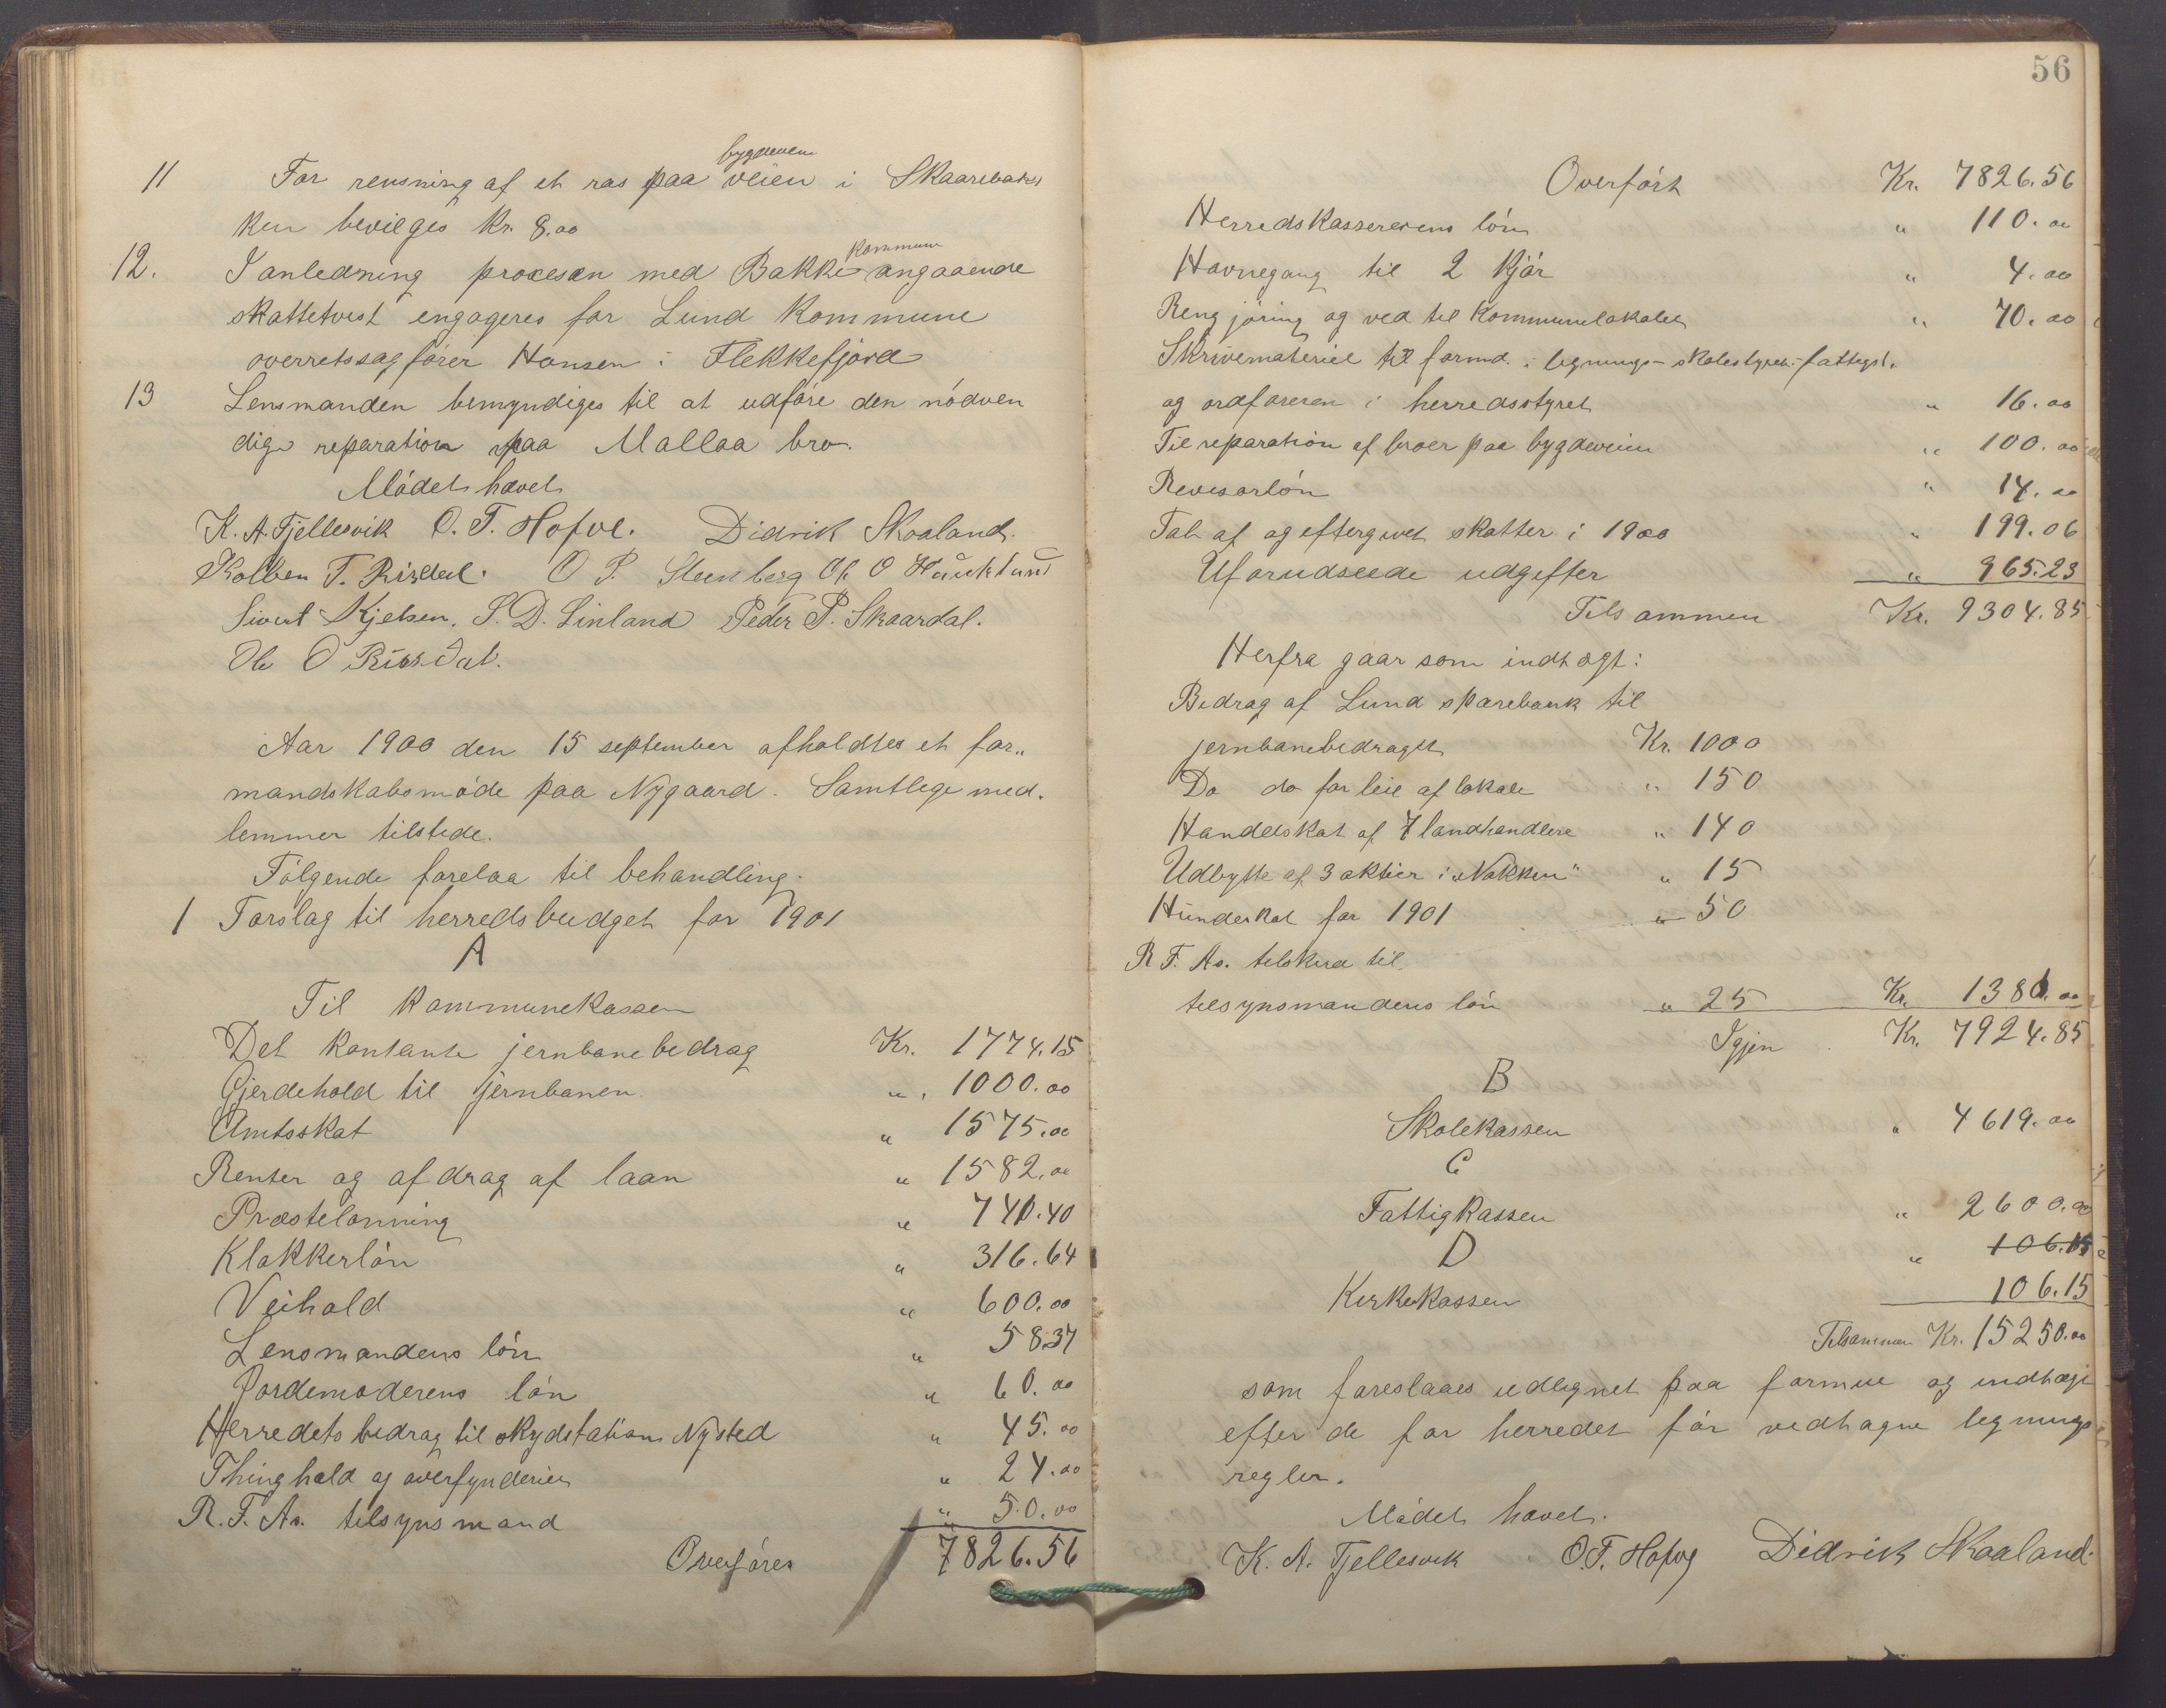 11 For rensning af et ras paa bygdeveien veien i Skaarebak
ken bevilges Kr. 8.00
12. I anledning procesen med Bakke kommune angaaende
skattetvist engageres for Lund Kommune
overretssagfører Hansen i Flekkefjord
13 Lensmanden bemyndiges til at udføre den nødven
dige reparation paa Mallaa bro.
Mødet hævet
K. A. Fjellesvik O. T. Hofve. Didrik Skaaland.
Kolben T. Risdal. O P. Steenberg Ole O Haukland
Sivert Kjelsen. S. D. Linland Peder P. Skaardal.
Ole O Risdal.
Aar 1900 den 15 september afholdtes et for„
mandskabsmøde paa Nygaard. Samtlege med.
lemmer tilstede.
Følgende forelaa til behandling.
1 Forslag til herredsbudget for 1901
A
Til Kommunekassen
Det kontante jernbanebedrag Kr. 1774.15
Gjerdehold til jernbanen „ 1000.00
Amtsskat „ 1575.00
Renter og afdrag af laan „ 1582.00
Præstelønning „ 740.40
Klokkerløn „ 316.64
Veihold „ 600.00
Lensmandens løn „ 58.37
Jordemoderens løn „ 60.00
Herredets bedrag til skydstation Nysted „ 45.00
Thinghold og overfynderien „ 24.00
R. F. As. tilsynsmand „ 50.00
Overføres 7826.56
56
Overført Kr. 7826.56
Herredskassererens løn „ 110.00
Havnegang til 2 Kjør „ 4.00
Rengjøring og ved til Kommunelokalet „ 70.00
Skrivemateriel til formd. i legnings- skolestyret- fattigst.
og ordføreren i herredsstyret „ 16.00
Til reparation af broer paa bygdeveien „ 100.00
Revisorløn „ 14.00
Tab af og eftergivet skatter i 1900 „ 199.06
Uforudseede udgifter „ 965.23
Tilsammen Kr. 9304.85
Herfra gaar som indtægt:
Bedrag af Lund sparebank til
jernbanebedraget Kr. 1000
Do do for leie af lokale „ 150
Handelskat af 7 landhandlere „ 140
Udbytte af 3 aktier i „Nøkken" „ 15
Hundeskat for 1901 „ 50
R F. As. tilskud til
tilsynsmandens løn „ 25 Kr. 1380.00
Igjen Kr. 7924.85
B
Skolekassen „ 4619.00
C
Fattigkassen „ 2600.00
D „ 106.15
Kirkekassen 106.15
Tilsammen Kr. 15250.00
som foreslaaes udlignet paa formue og indtægt
efter de for herredet før vedtagne legnings
regler.
Mødet hævet.
K. A. Fjellesvik O. T. Hofve Didrik Skaaland.